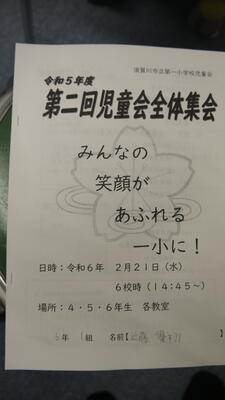 須賀川市立第一小学校児童会
令和５年度
第二回児童会全体集会
みんなの
笑顔が
あふれる
一小に！
日時：令和６年　２月２１日（水）
６校時（１４：４５～）
場所：４・５・６年生　各教室
6年　1組　名前【　　　】